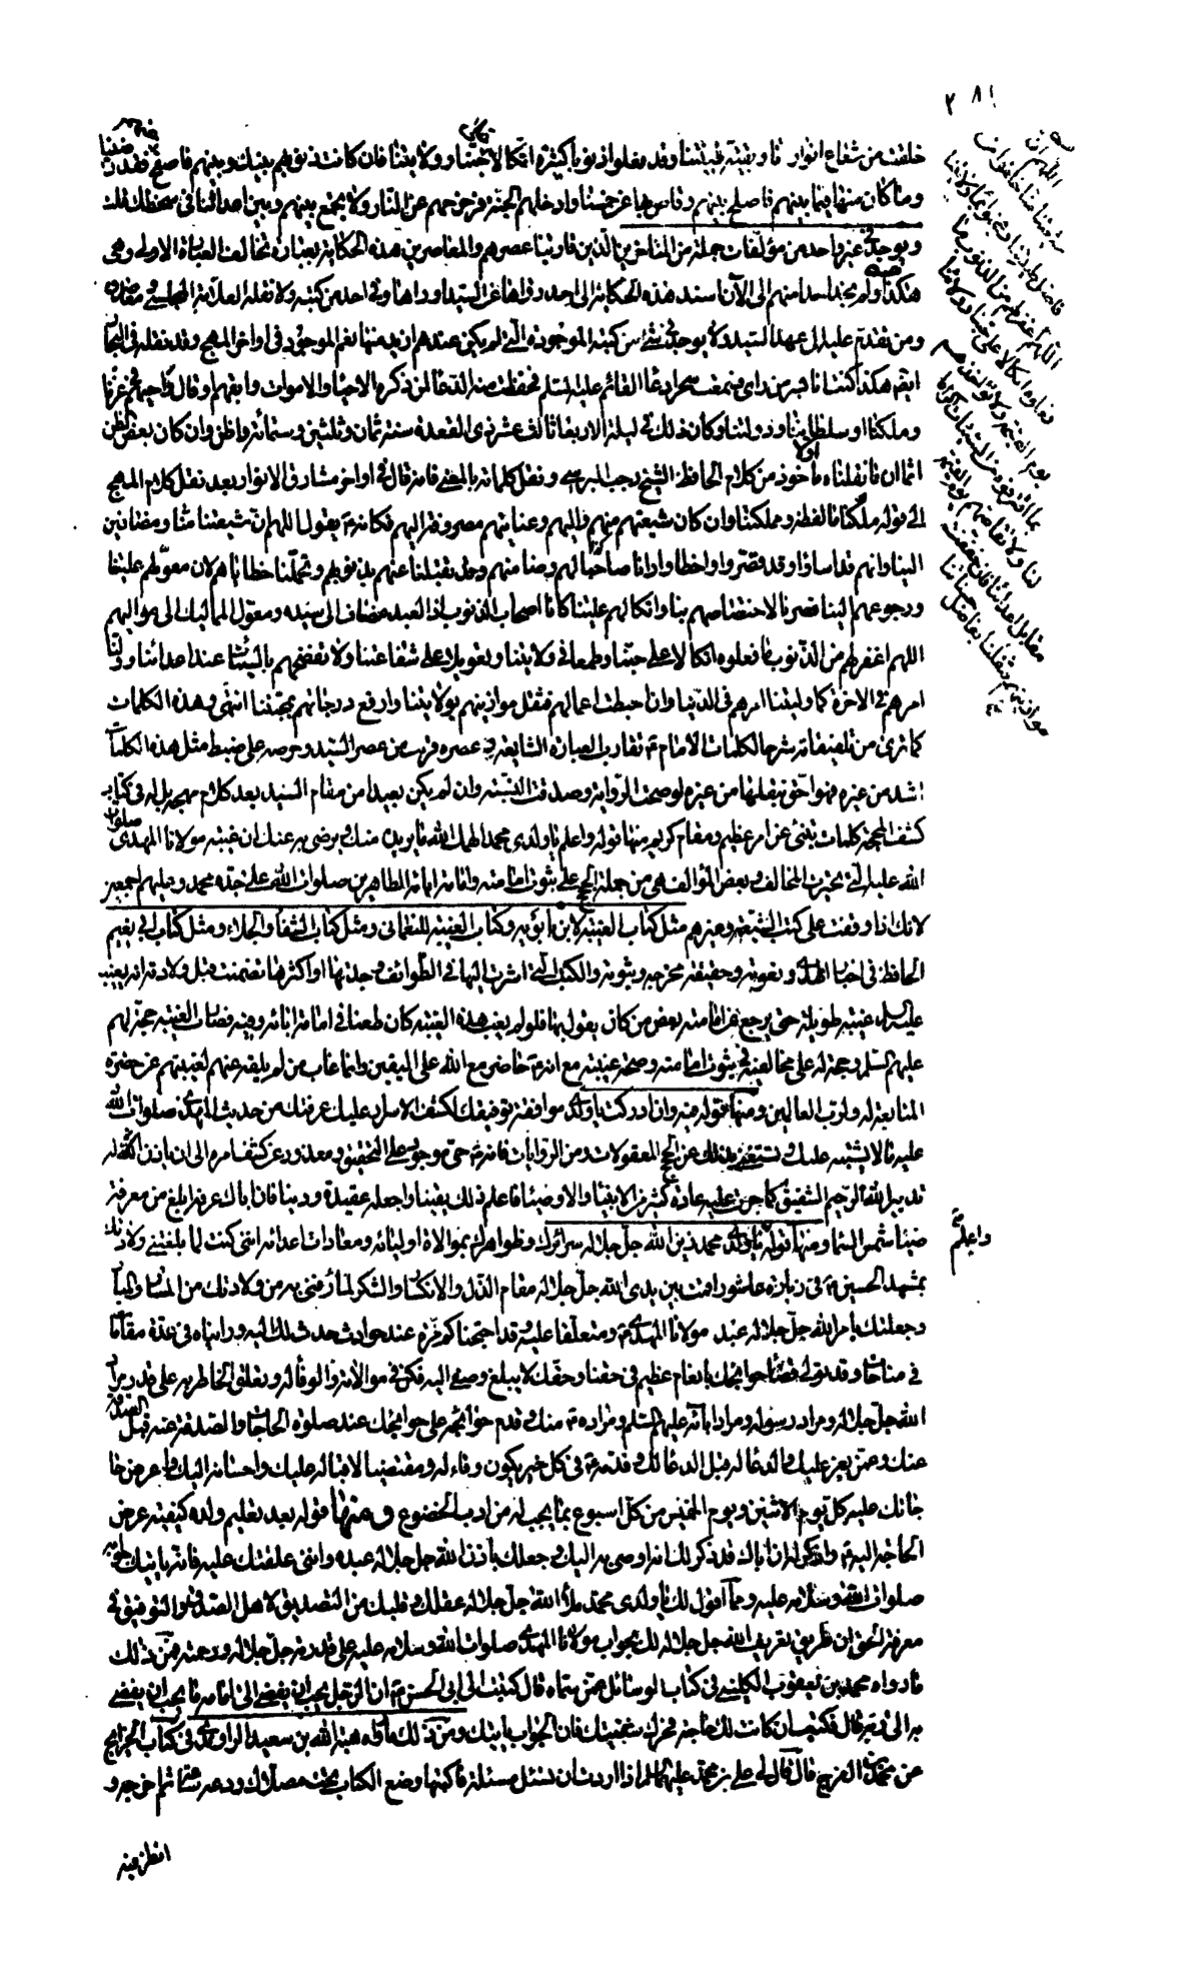 ٢٨١
خلقت من شعاع انوارنا وبقية طينتنا وقد فعلوا ذنوبا كثيرة اتكالا على حبنا وولايتنا فان كانت ذنوبهم بينك وبينهم فاصفح عنهم فقد رضينا
وما كان منها فيما بينهم فاصلح بينهم وقاص بها عن خمسنا وادخلهم الجنة وزحزحهم عن النار ولا تجمع بينهم وبين اعدائنا في سخطك قلت
ويوجد في غير واحد من مؤلفات جملة من المتاخرين الذين قاربنا عصرهم والمعاصرين هذه الحكاية بعبارة تخالف العبارة الاولى وهي
هكذا ولم نجد احدا منهم الى الآن اسند هذه الحكاية الى احد رواها عن السيد او راها في احد من كتبه ولا نقله العلامة المجلسي ومعاصروه
ومن تقدم عليه الى عهد السيد ولا يوجد في شيء من كتبه الموجودة التي لم يكن عندهم ازيد منها نعم الموجود في اواخر المهج وقد نقله في البحار
ايضا هكذا كنت انا بسر من راى فسمعت سحرا دعاء القائم عليه السلم فحفظت منه الدعاء لمن ذكره الاحياء والاموات وابقهم او قال واحيهم في عزنا
وملكنا او سلطاننا ودولتنا وكان ذلك في ليلة الاربعاء ثالث عشر ذي القعدة سنة ثمان وثلثين وستمائة واظن وان كان بعض الظن
اثما ان ما نقلناه اولا ماخوذ من كلام الحافظ الشيخ رجب البرسي ونقل كلماته بالمعنى فانه قال في اواخر مشارق الانوار بعد نقل كلام المهج
الى قوله ملكنا ما لفظه ومملكتنا وان كان شيعتهم منهم واليهم وعنايتهم مصروفة اليهم فكانه ع يقول اللهم ان شيعتنا منا ومضافين
الينا وانهم قد اساؤا وقد قصروا واخطاوا راونا صاحبا لهم رضا منهم وقد تقبلنا عنهم بذنوبهم وتحملنا خطاياهم لان معولهم علينا
ورجوعهم الينا فصرنا لاختصاصهم بنا واتكالهم علينا كانا اصحاب الذنوب اذ العبد مضاف الى سيده ومعول المماليك الى مواليهم
اللهم اغفر لهم من الذنوب ما فعلوه اتكالا على حبنا وطمعا في ولايتنا وتعويلا على شفاعتنا ولا تفضحهم بالسيئات عند اعدائنا وولنا
امرهم في الاخرة كما وليتنا امرهم في الدنيا وان احبطت اعمالهم فثقل موازينهم بولايتنا وارفع درجاتهم بمحبتنا انتهى وهذه الكلمات
كما ترى من تلفيقاته شرحا لكلمات الامام ع تقارب العبارة الشايعة وعصره قريب من عصر السيد وحرصه على ضبط مثل هذه الكلمات
اشد من غيره فهو احق بنقلها من غيره لو صحت الرواية وصدقت النسبة وان لم يكن بعيدا من مقام السيد بعد كلام مهجه بل له في كتاب
كشف المحجة كلمات تنبئ عن امر عظيم ومقام كريم منها قوله واعلم يا ولدي محمد الهمك الله ما يريده منك ويرضى به عنك ان غيبة مولانا المهدي صلوات
الله عليه التي تحيرت المخالف وبعض المؤالف هي من جملة الحجج على ثبوت امامته وامامة ابائه الطاهرين صلوات الله على جده محمد وعليهم اجمعين
لانك اذا وقفت على كتب الشيعة وغيرهم مثل كتاب الغيبة لابن بابويه وكتاب الغيبة للنعماني ومثل كتاب الشفاء والجلاء ومثل كتاب ابي نعيم
الحافظ في اخبار المهدي ونعوته وحقيقة مخرجه وثبوته والكتب التي اشرت اليها في الطوائف وجدتها او اكثرها تضمنت قبل ولادته انه يغيب
عليه السلم غيبة طويلة حتى يرجع عن امامته بعض من كان يقول بها فلو لم يغب هذه الغيبة كان طعنا في امامة ابائه وفيه فصارت الغيبة حجة لهم
عليهم السلم وحجة له على مخالفيه في ثبوت امامته وصحة غيبته مع انه ع حاضر مع الله على اليقين وانما غاب من لم يلقه عنهم لغيبتهم عن حضرة
المتابعة له ولرب العالمين ومنها قوله فيه وان ادركت يا ولدي موافقة توفيقك لكشف الاسرار عليك عرفتك من حديث المهدي صلوات الله
عليه ما لا يشتبه عليك وتستغني بذلك عن الحجج المعقولات ومن الروايات فانه ع حي موجود على التحقيق ومعذور عن كشف امره الى ان ياذن الله له
تدبير الله الرحيم الشفيق كما جرت عليه عادة كثير من الانبياء والاوصياء فاعلم ذلك يقينا واجعله عقيدة ودينا فان اباك عرفه ابلغ من معرفة
ضياء شمس السماء ومنها قوله واعلم يا ولدي محمد زين الله جل جلاله سرائرك وظواهرك بموالاة اوليائه ومعادات اعدائه انني كنت لما بلغتني ولادتك
بمشهد الحسين ع في زيارة عاشورا قمت بين يدي الله جل جلاله مقام الذل والانكسار والشكر لما رافني به من ولادتك من المسار والمبار
وجعلتك بامر الله جل جلاله عبد مولانا المهدي ع ومتعلقا عليه وقد احتجنا كم مرة عند حوادث حدثت لك اليه وراينا في عدة مقامات
في مناجات وقد تولى قضاء حوايجك بانعام عظيم في حقنا وحقك لا يبلغ وصفي اليه فكن في موالاته والوفاء له وتعلق الخاطر به على قدر مراد
الله جل جلاله ومراد رسوله ومراد ابائه عليهم السلم ومراده ع منك وقدم حوائجه على حوائجك عند صلوة الحاجات والصدقة عنه قبل الصدقة
عنك وعمن يعز عليك والدعاء له قبل الدعاء لك وقدمه ع في كل خير يكون وفاء له ومقتضيا لاقباله عليك واحسانه اليك واعرض حا
جاتك عليه كل يوم الاثنين ويوم الخميس من كل اسبوع بما يجب له من ادب الخضوع ومنها قوله بعد تعليم ولده كيفية عرض
الحاجة اليه ع واذكر له ان اباك قد ذكر لك انه اوصى به اليك وجعلك باذن الله جل جلاله عبده وانني علقتك عليه فانه ياتيك جوابه
صلوات الله وسلامه عليه ومما اقول لك يا ولدي محمد ملا الله جل جلاله عقلك وقلبك من التصديق لاهل الصدق والتوفيق في
معرفة الحق ان طريق تعريف الله جل جلاله لك بجواب مولانا المهدي صلوات الله وسلامه عليه على قدرته جل جلاله ورحمته فمن ذلك
ما رواه محمد بن يعقوب الكليني في كتاب الوسائل عمن سماه قال كتبت الى ابي الحسن ع ان الرجل يحب ان يفضي الى امامه ما يحب ان يفضي
به الى ربه قال فكتب ان كانت لك حاجة فحرك شفتيك فان الجواب ياتيك ومن ذلك ما رواه هبة الله بن سعيد الراوندي في كتاب الخرايج
عن محمد بن الفرج قال قال لي علي بن محمد عليهما السلم اذا اردت ان تسئل مسئلة فاكتبها وضع الكتاب تحت مصلاك ودعه ساعة ثم اخرجه و
انظر فيه
اللهم ان
شيعتنا منا خلقوا من
فاضل طينتنا وعجنوا بماء ولايتنا
اللهم اغفر لهم من الذنوب ما
فعلوه اتكالا على حبنا وولائنا
يوم القيمة ولا تؤاخذهم
بما اقترفوه من السيئات اكراما
لنا ولا تقاصهم يوم القيمة
مقابل اعدائنا فان خففت
موازينهم فثقلها بفاضل
حسناتنا